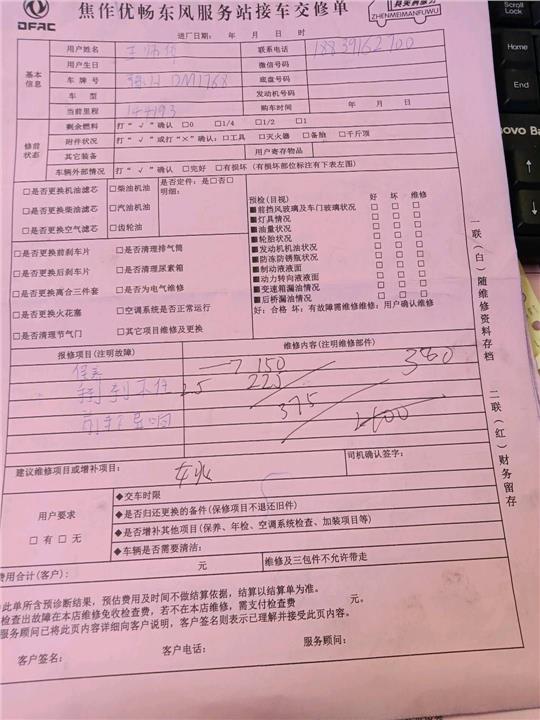 DFAC
焦作优畅东风服务站接车交修单
ZHENMEIMANFUWU
进厂日期: 年 月 日
基本信息
用户姓名 联系电话 18839162700
用户生日 微信号码
车牌号 DM1768 底盘号码
车型 发动机号码
当前里程 144193 购车时间 年 月 日
修前状态
剩余燃料 打“√”确认 □0 □1/4 □1/2 □1
附件状况 打“√”或打“×”确认:□工具 □灭火器 □备胎 □千斤顶
其它装备 用户寄存物品
车辆外部情况 打“√”确认 □完好 □有损坏(有损坏部位标注有下表左图)
□是否更换机油滤芯 □柴油机油 是否定件:是□否□
明细:
□是否更换柴油滤芯 □汽油机油
□是否更换空气滤芯 □齿轮油
□是否更换前刹车片 □是否清理排气筒
□是否更换后刹车片 □是否清理尿素箱
□是否更换离合三件套 □是否为电气维修
□是否更换火花塞 □空调系统是否正常运行
□是否清理节气门 □其它项目维修及更换
预检(目视) 好 坏 维修
■前挡风玻璃及车门玻璃状况 □ □ □
■灯具情况 □ □ □
■油量状况 □ □ □
■轮胎状况 □ □ □
■发动机机油状况 □ □ □
■防冻防锈瓶状况 □ □ □
■制动液液面 □ □ □
■动力转向液液面 □ □ □
■变速箱漏油情况 □ □ □
■后桥漏油情况 □ □ □
好:合格 坏:有故障需维修维修:用户确认维修
报修项目(注明故障) 维修内容(注明维修部件)
保养 150 380
225
375
建议维修项目或增补项目: 司机确认签字:
用户要求
□有 □无
◆交车时限
◆是否归还更换的备件(保修项目不退还旧件)
◆是否增补其他项目(保养、年检、空调系统检查、加装项目等)
◆车辆是否需要清洁:
费用合计(客户): 元 维修及三包件不允许带走
此单所含预诊断结果,预估费用及时间不做结算依据,结算以结算单为准。
检查出故障在本店维修免收检查费,若不在本店维修,需支付检查费 元。
服务顾问已将此页内容详细向客户说明,客户签名则表示已理解并接受此页内容。
客户签名: 客户电话: 服务顾问:
一联(白)随维修资料存档
二联(红)财务留存
Scroll
Lock
End
Pause
Break
novo